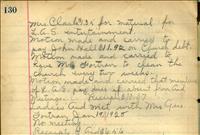 130
Mrs Clark 9.35 for material for
L.A.S. entertainment.
Motion made and carried to
pay John Hall $1.92 on Church debt.
Motion made and carried to
have Mrs Gortran to clean the
church every two weeks.
Motion made and carried that members
of L.A.S. pay dues if absent from
Meetings.
Ladies Aid Met with Mrs Geo.
Gortran Jan 15/1925
No meeting